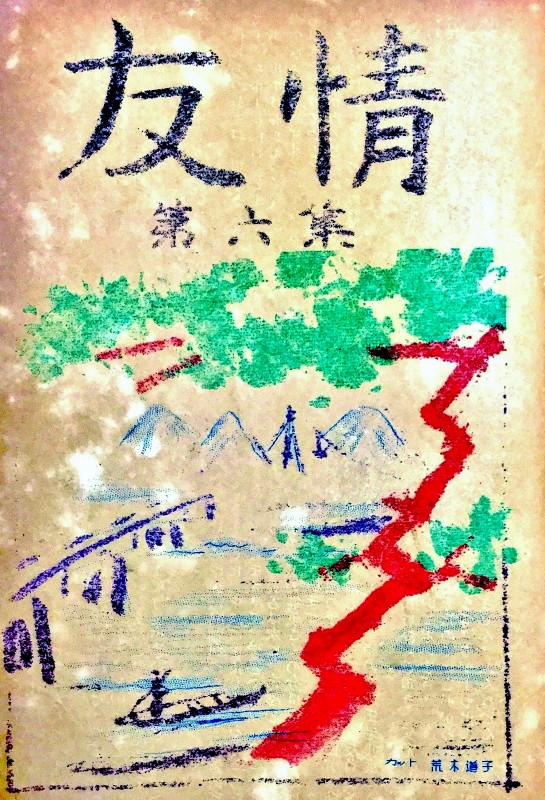 友情
第六集
カット 荒木道子